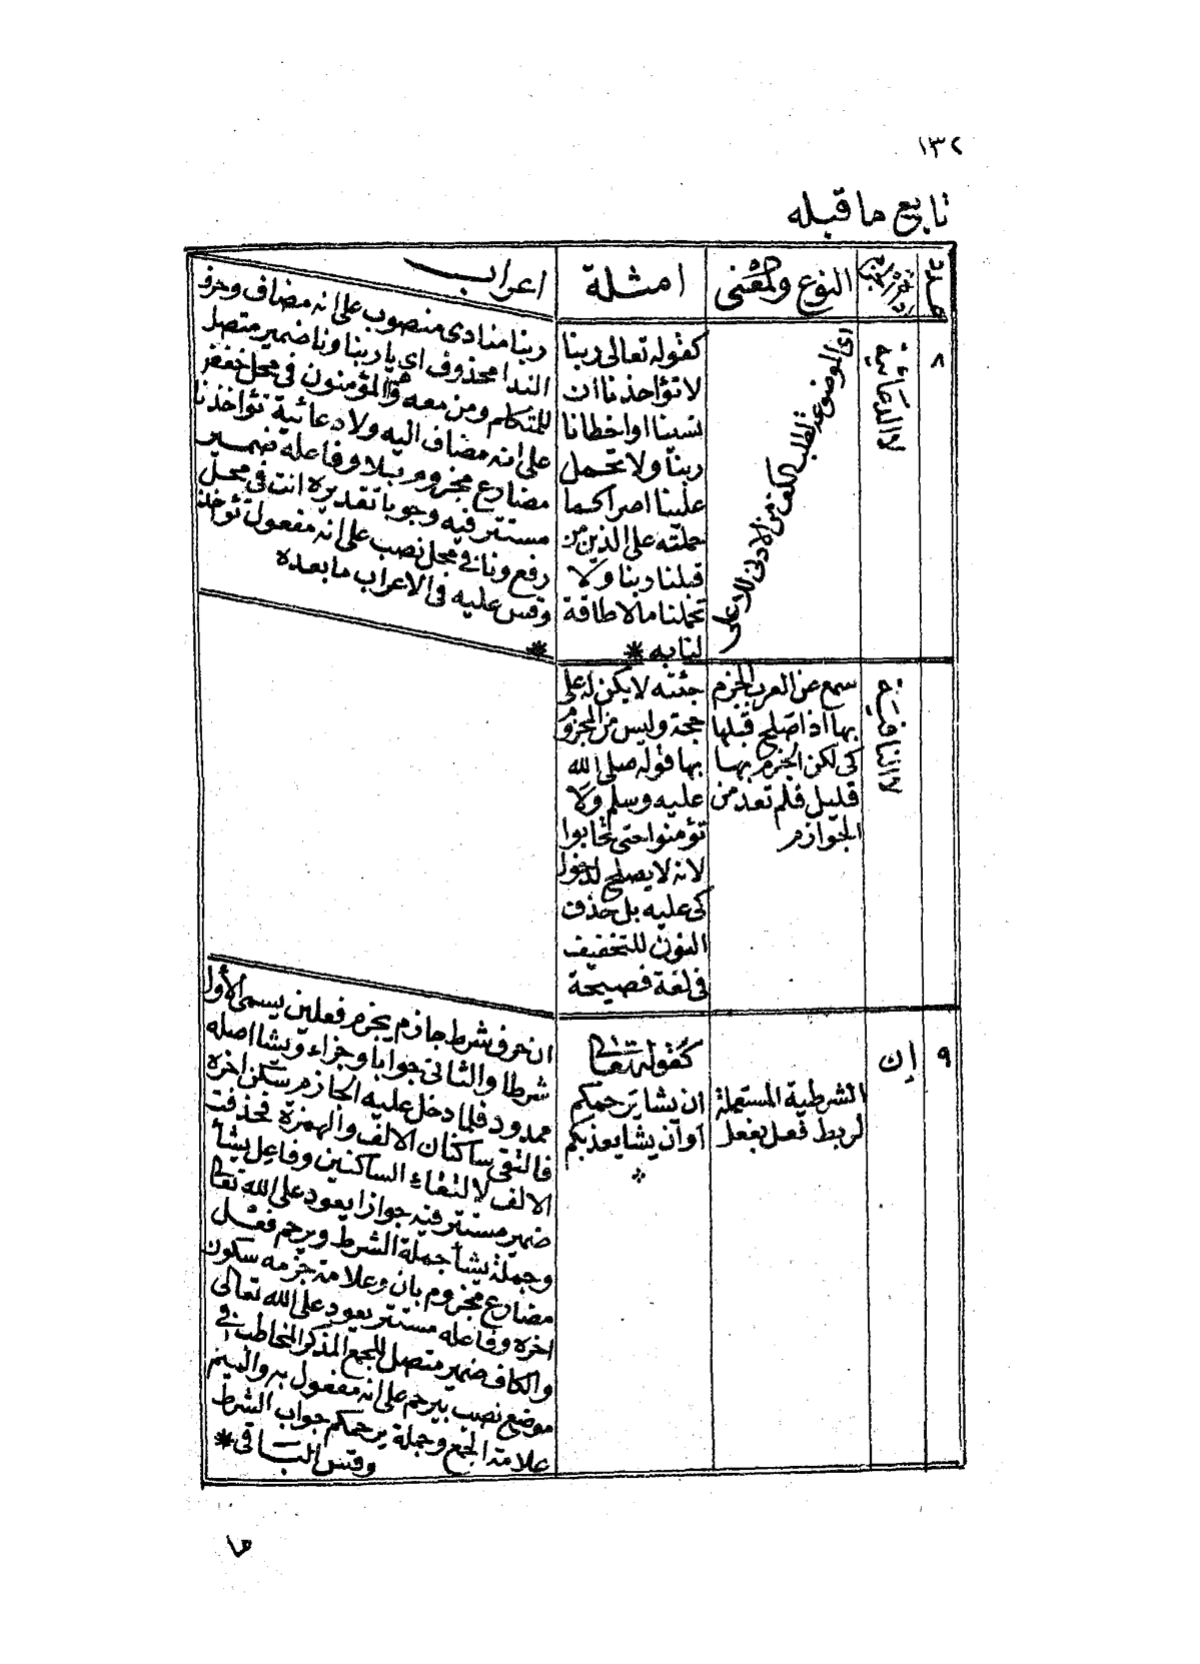 ١٣٢
تابع ما قبله
عدد
ادوات الجزم
النوع والمعنى
امثلة
اعراب
٨
لا الدعائية
اى الموضوعة لطلب الكف من الادنى للاعلى
كقوله تعالى ربنا
لا تؤاخذنا ان
نسينا او اخطانا
ربنا ولا تحمل
علينا اصرا كما
حملته على الذين من
قبلنا ربنا ولا
تحملنا ما لا طاقة
لنا به *
ربنا منادى منصوب على انه مضاف وحرف
الندا محذوف اى يا ربنا ونا ضمير متصل
للمتكلم ومن معه وهم المؤمنون فى محل خفض
على انه مضاف اليه ولا دعائية تؤاخذنا
مضارع مجزوم بلا وفاعله ضمير
مستتر فيه وجوبا تقديره انت فى محل
رفع ونا فى محل نصب على انه مفعول تؤاخذ
وقس عليه فى الاعراب ما بعده
*
لا النافية
سمع عن العرب الجزم
بها اذا صلح قبلها
كى لكن الجزم بها
قليل فلم تعد من
الجوازم
جئته لا يكن له على
حجة وليس من المجزوم
بها قوله صلى الله
عليه وسلم ولا
تؤمنوا حتى تحابوا
لانه لا يصلح لدخول
كى عليه بل حذف
النون للتخفيف
فى لغة فصيحة
٩
إن
الشرطية المستعملة
لربط فعل بفعل
كقوله تعالى
ان يشا يرحمكم
او ان يشا يعذبكم
ان حرف شرط جازم يجزم فعلين يسمى الأول
شرطا والثانى جوابا وجزاء ويشا اصله
ممدود فلما دخل عليه الجازم سكن اخره
فالتقى ساكنان الالف والهمزة فحذفت
الالف لالتقاء الساكنين وفاعل يشأ
ضمير مستتر فيه جوازا يعود على الله تعالى
وجملة يشأ جملة الشرط ويرحم فعل
مضارع مجزوم بان وعلامة جزمه سكون
اخره وفاعله مستتر يعود على الله تعالى
والكاف ضمير متصل للجمع المذكر المخاطب فى
موضع نصب بيرحم على انه مفعول به والميم
علامة الجمع وجملة يرحمكم جواب الشرط
وقس الباقى *